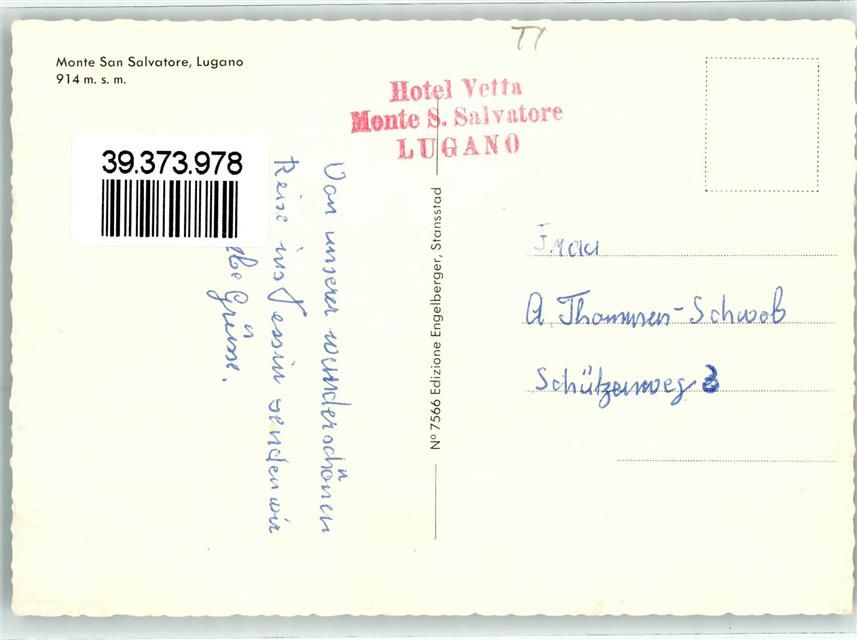 Monte San Salvatore, Lugano
914 m. s. m.
TI
Hotel Vetta
Monte S. Salvatore
LUGANO
39.373.978
Von unserer wunderschönen
Reise ins Tessin senden wir
Grüsse.
Nº 7566 Edizione Engelberger, Stansstad
Frau
A Thommen-Schwob
Schützenweg 3